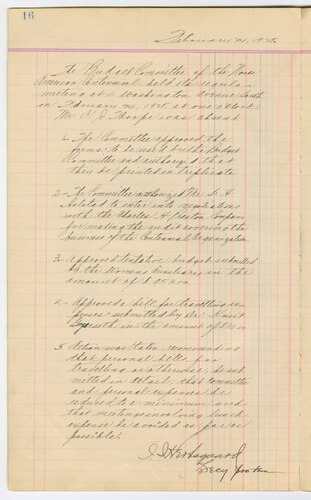 16
February 24, 1925.
The Budget Committee of the Norse
American Centennial held its regular
meeting at 4 Washington Avenue South
on February 24, 1925 at one o'clock
Mr. O. J. Thorpe was absent
1- The Committee approved the
forms to be used by the Budget
Committee and authorized that
they be printed in triplicate
2- The Committee authorized Mr. S. H.
Holstad to enter into negotiations
with the Charles H. Preston Company
for making the audit covering the
business of the Centennial Organization
3- Approved tentative budget submitted
by the Womens Auxiliary in the
amount of $
4- Approved a bill for travelling ex-
penses submitted by Dr. Knut
Gjerseth in the amount of
5 Action was taken recommending
that personal bills for
travelling or otherwise, be sub
mitted in detail; that committee
and personal expenses be
reduced to a minimum and
that meetings involving such
expense be avoided as far as
possible.
Hertsgaard
Secy pro tem